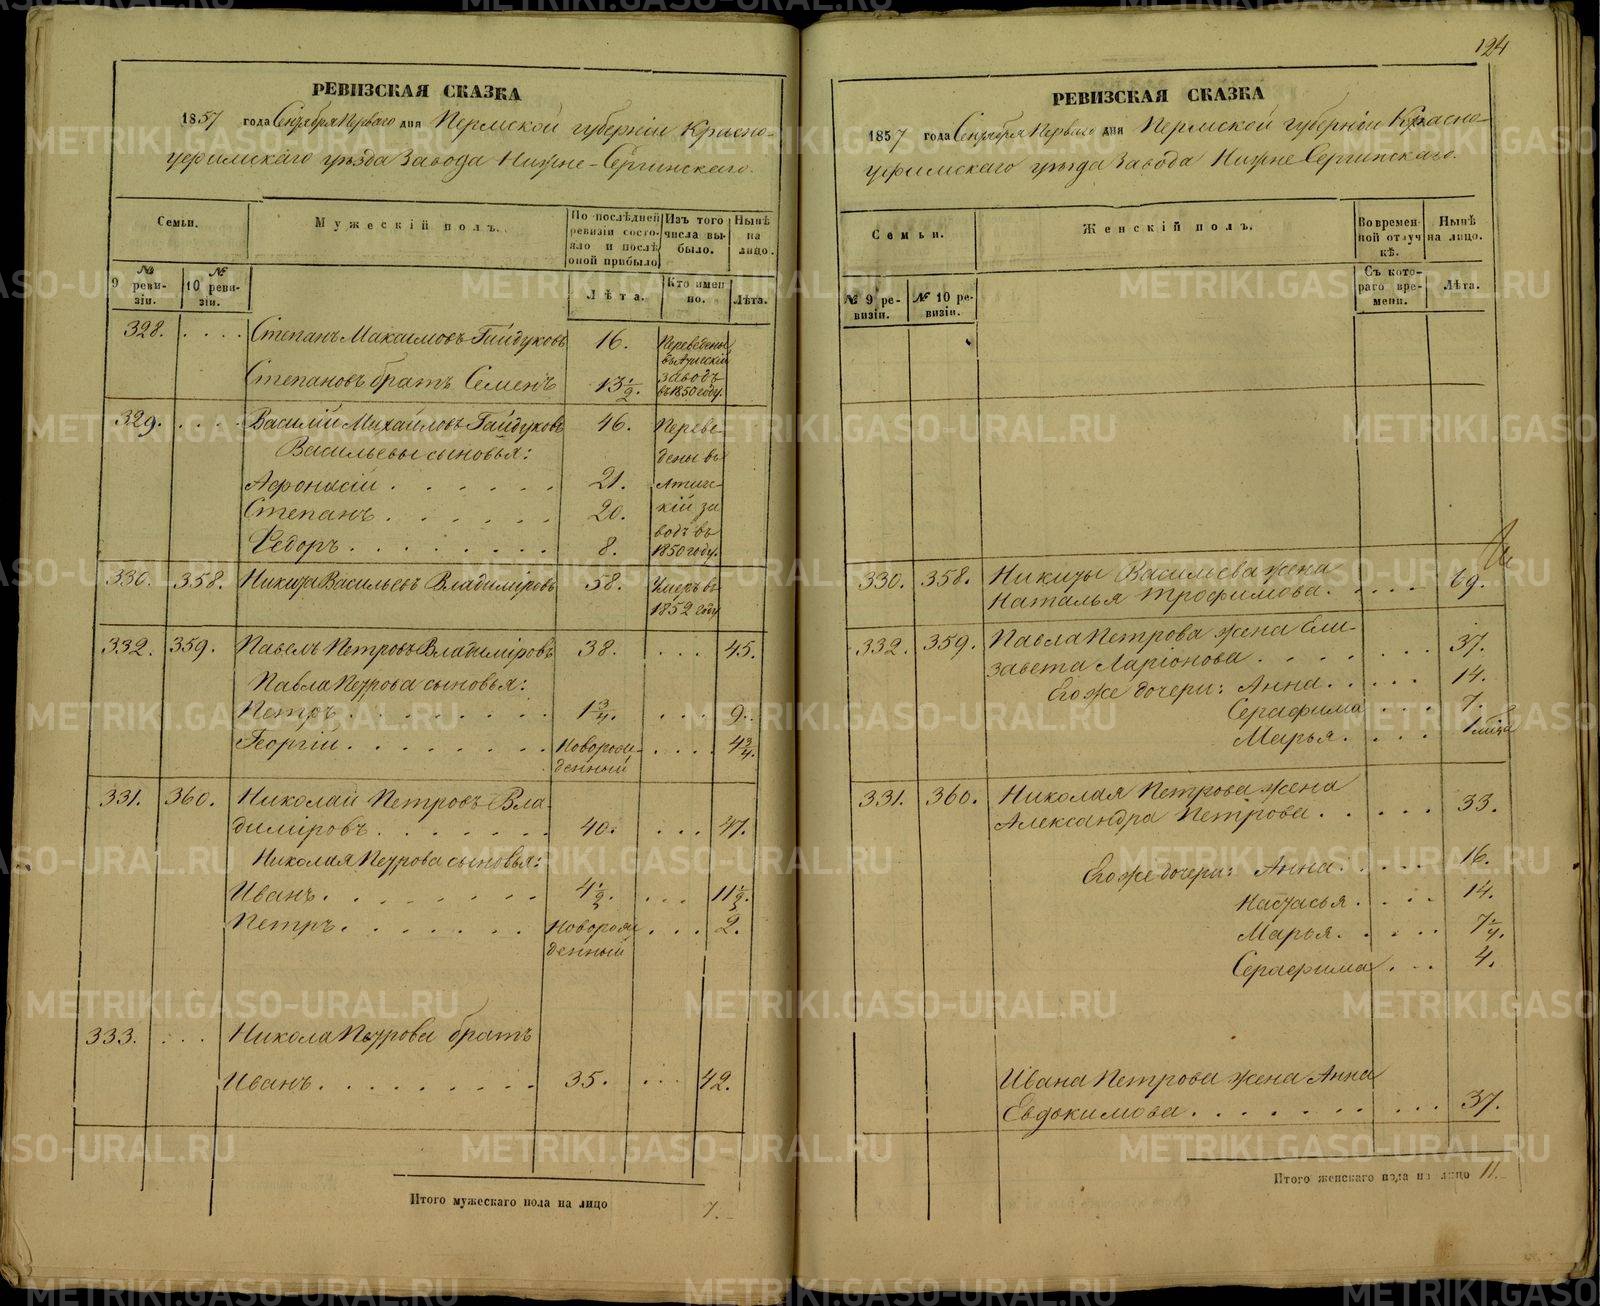 РЕВИЗСКАЯ СКАЗКА
1857 года Сентября Перваго дня Пермской губерніи Красно-
уфимскаго уѣзда Завода Нижне-Сергинскаго.
Семьи.
Мужескій полъ.
По послѣдней ревизіи состояло и послѣ оной прибыло
Изъ того числа выбыло.
Нынѣ на лицо.
№ 9 ревизіи.
№ 10 ревизіи.
Лѣта.
Кто именно.
Лѣта.
328. . . . . Степанъ Максимовъ Гайдуковъ 16. Переведены
въ
Степановъ братъ Семенъ 13½. заводъ
въ 1850 году.
329. . . . . Василій Михайловъ Гайдуковъ 46. Переве-
Васильевы сыновья: дены въ
Афонасій . . . . . . 21. Атиг-
Степанъ . . . . . . 20. скій за
водъ въ
Федоръ . . . . . . . . 8. 1850 году.
330. 358. Никита Васильевъ Владиміровъ 58. Умеръ въ
1852 году
332. 359. Павелъ Петровъ Владиміровъ 38. . . . 45.
Павла Петрова сыновья:
Петръ . . . . . . . . 1¾. . . . 9.
Георгій . . . . . . . . Новорож- . . . . 4¾.
денный
331. 360. Николай Петровъ Вла-
диміровъ . . . . . . . 40. . . . 47.
Николая Петрова сыновья:
Иванъ . . . . . . . . 4½. . . . 11½.
Петръ . . . . . . . Новорож . . . 2.
денный
333. . . . Никола Петрова братъ
Иванъ . . . . . . . . . 35. . . . 42.
Итого мужескаго пола на лицо 7.
124
РЕВИЗСКАЯ СКАЗКА
1857 года Сентября Перваго дня Пермской губерніи Красно-
уфимскаго уѣзда Завода Нижне Сергинскаго.
Семьи.
Женскій полъ.
Во временной отлучкѣ.
Нынѣ на лицо.
№ 9 ревизіи.
№ 10 ревизіи.
Съ котораго времени.
Лѣта.
330. 358. Никиты Васильева жена
Наталья Трофимова. . . . . 69.
332. 359. Павла Петрова жена Ели-
завета Ларіонова . . . . . . . 37.
Его же дочери: Анна . . . . . 14.
Серафима . . . 7.
Марья . . . . 1 мѣсца
331. 360. Николая Петрова жена
Александра Петрова . . . . . 33.
Его же дочери: Анна . . . . . 16.
Настасья . . . . 14.
Марья . . . . . 7¼.
Серафима . . . 4.
Ивана Петрова жена Анна
Евдокимова . . . . . . . . . . 37.
Итого женскаго пола на лицо 11.
METRIKI.GASO-URAL.RU